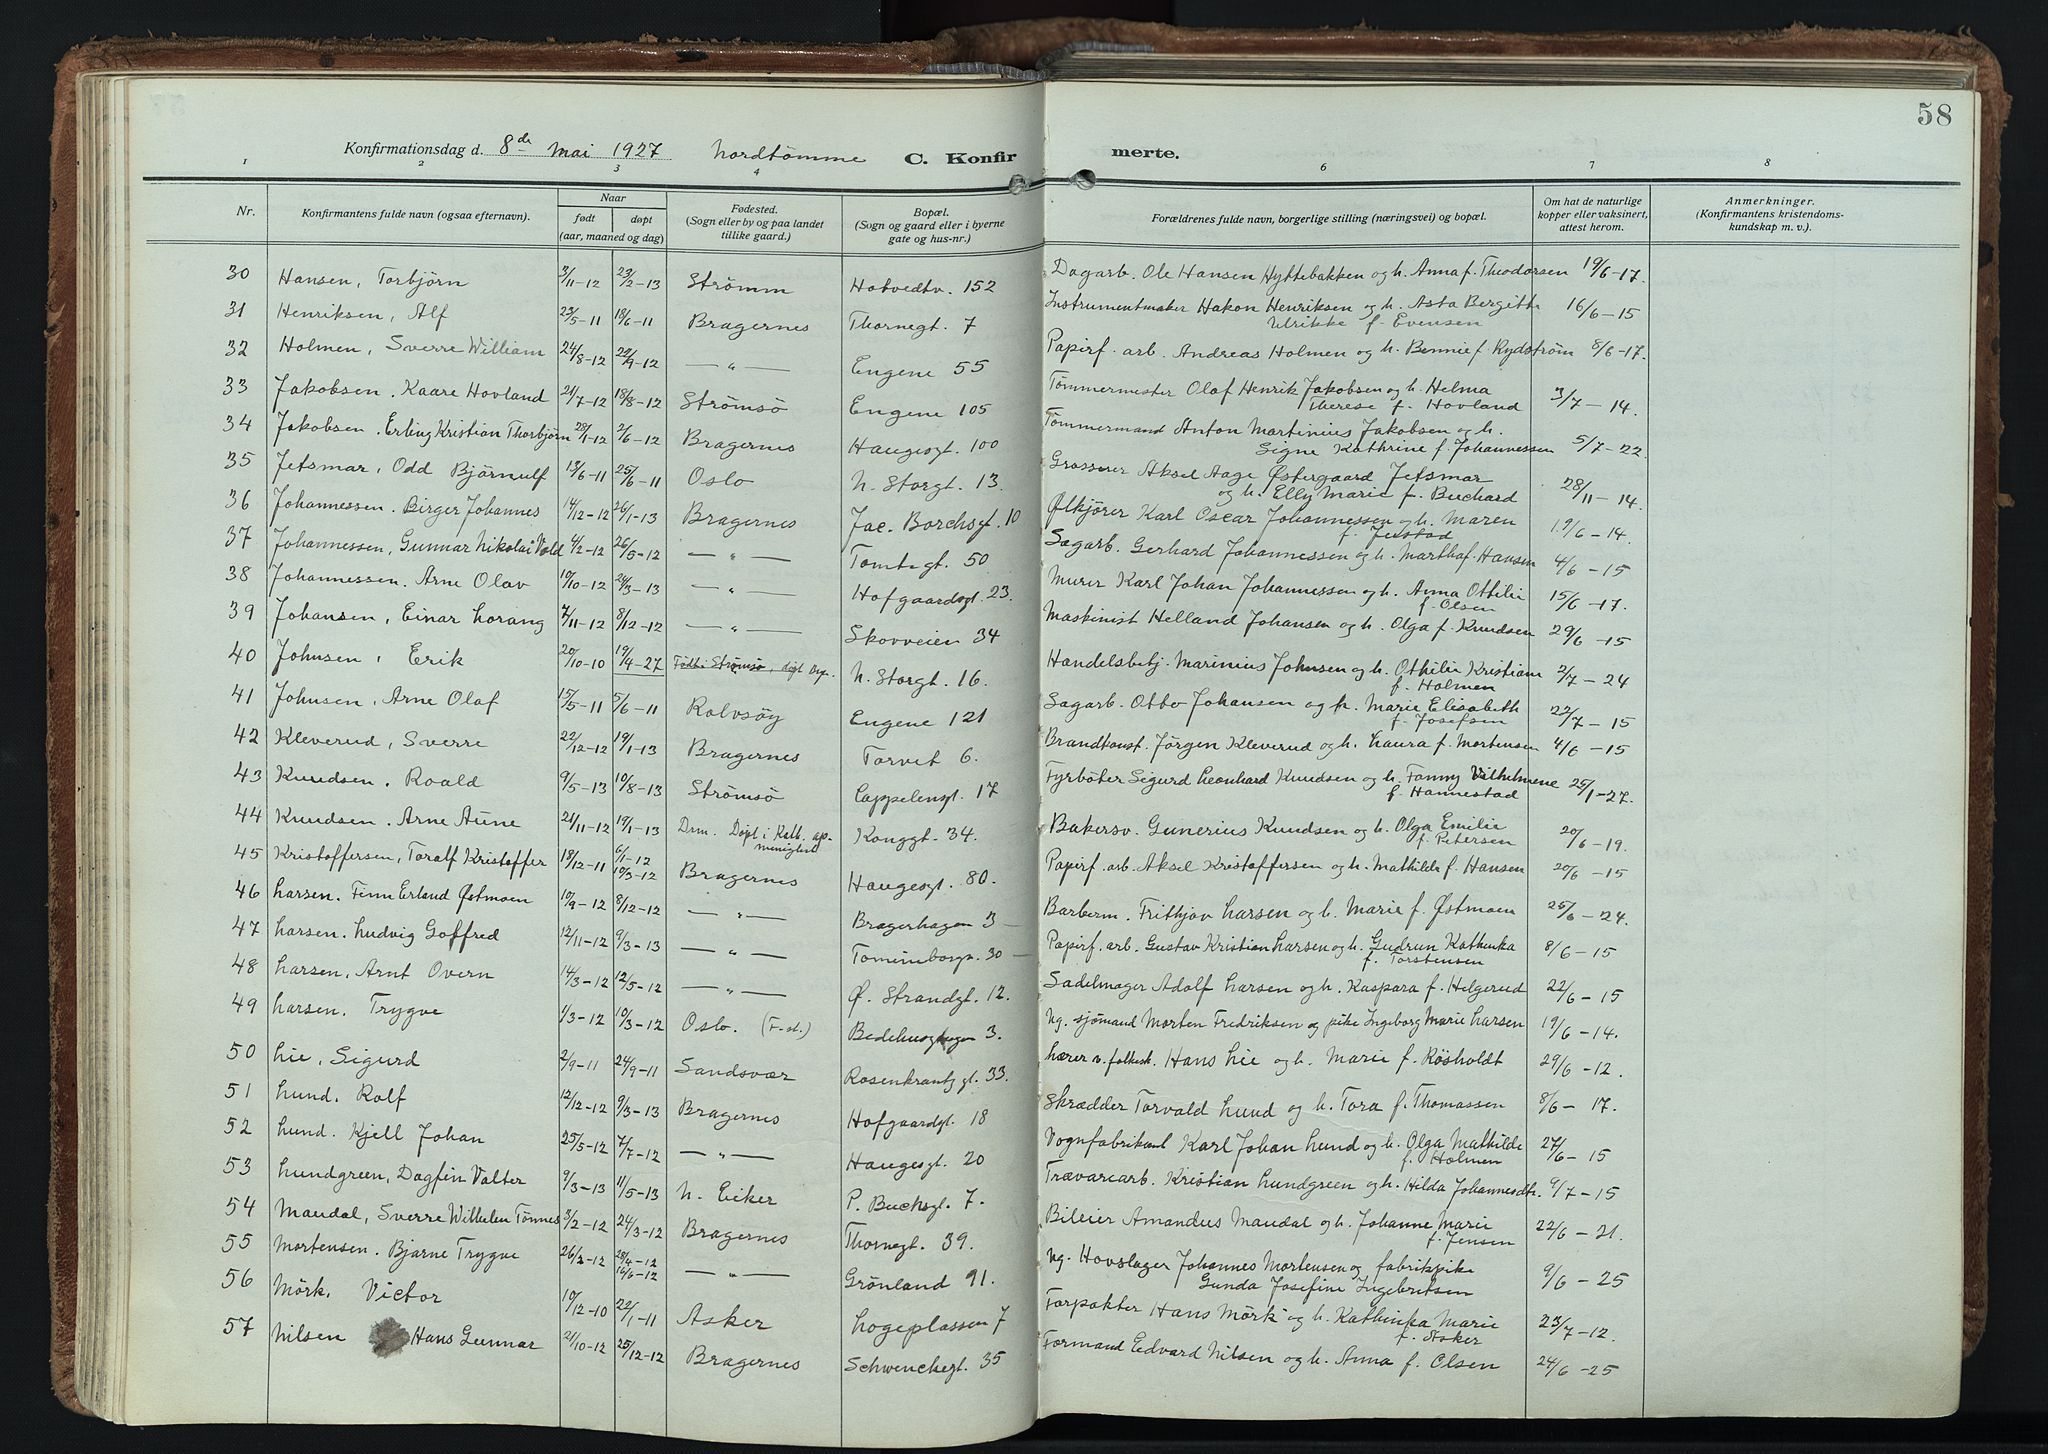 58
Konfirmationsdag d. 8de mai 1927 Nordtømme C. Konfirmerte.
1 2 3 4 6 7 8
Nr. Konfirmantens fulde navn (ogsaa efternavn). Naar født døpt (aar, maaned og dag) Fødested. (Sogn eller by og paa landet tillike gaard.) Bopæl. (Sogn og gaard eller i byerne gate og hus-nr.) Forældrenes fulde navn, borgerlige stilling (næringsvei) og bopæl. Om hat de naturlige kopper eller vaksinert, attest herom. Anmerkninger. (Konfirmantens kristendomskundskap m. v.)
30 Hansen, Torbjörn 3/11-12 23/2-13 Strømm Hotvedtv. 152 Dagarb. Ole Hansen Hyttebakken og h. Anna f. Theodorsen 19/6-17.
31 Henriksen, Alf 23/5-11 18/6-11 Bragernes Thornegt. 7 Instrumentmaker Hakon Henriksen og h. Asta Bergitte Ulrikke f. Evensen 16/6-15
32 Holmen, Sverre William 24/8-12 22/9-12 — " — Engene 55 Papirf. arb. Andreas Holmen og h. Bennie f. Rydström 8/6-17.
33 Jakobsen. Kaare Hovland 21/7-12 18/8-12 Strømsø Engene 105 Tømmermester Olaf Henrik Jakobsen og h. Helma Therese f. Hovland 3/7-14.
34 Jakobsen. Erling Kristian Thorbjørn 28/1-12 2/6-12 Bragernes Haugesgt. 100 Tømmermand Anton Martinius Jakobsen og h. Signe Kathrine f. Johannessen 5/7-22.
35 Jetsmar, Odd Bjärnulf 13/6-11 25/6-11 Oslo N. Storgt. 13. Grosserer Aksel Aage Østergaard Jetsmar og h. Elly Marie f. Buchard 28/11-14.
36 Johannessen. Birger Johannes 14/12-12 26/1-13 Bragernes Jac. Borchsgt. 10 Ølkjører Karl Oscar Johannessen og h. Maren f. Jeistad 19/6-14.
37 Johannessen, Gunnar Nikolai Vold 4/2-12 26/5-12 — " — Tomtegt. 50 Sagarb. Gerhard Johannessen og h. Martha f. Hansen 4/6-15
38 Johannessen. Arne Olav 10/10-12 24/3-13 — " — Hofgaardsgt. 23. Murer Karl Johan Johannessen og h. Anna Othilie f. Olsen 15/6-17.
39 Johansen, Einar Lorang 7/11-12 8/12-12 — " — Skovveien 34 Maskinist Helland Johansen og h. Olga f. Knudsen 29/6-15
40 Johnsen, Erik 20/10-10 19/4-27 Født i Strømsø, døpt Brgn. N. Storgt. 16. Handelsbetj. Marinius Johnsen og h. Othilie Kristiane f. Holmen 2/7-24
41 Johnsen, Arne Olaf 15/5-11 5/6-11 Rolvsøy Engene 121 Sagarb. Otto Johansen og h. Marie Elisabeth f. Josefsen 22/7-15
42 Kleverud, Sverre 22/12-12 19/1-13 Bragernes Torvet 6. Brandkonst. Jörgen Kleverud og h. Laura f. Mortensen 4/6-15
43 Knudsen. Roald 9/5-13 10/8-13 Strömsö Cappelensgt. 17 Fyrböter Sigurd Leonhard Knudsen og h. Fanny Vilhelmene f. Hannestad 25/1-27.
44 Knudsen. Arne Aune 21/11-12 19/1-13 Drm. Døpt i Kath. ap. menighet Konggt. 34. Bakersv. Gunerius Knudsen og h. Olga Emilie f. Petersen 20/6-19.
45 Kristoffersen, Toralf Kristoffer 18/12-11 6/1-12 10/3-12 Bragernes Haugesgt. 80. Papirf. arb. Aksel Kristoffersen og h. Mathilde f. Hansen 20/6-15
46 Larsen. Finn Erland Østmoen 10/9-12 8/12-12 — " — Bragerhagen 3 — Barberm. Frithjov Larsen og h. Marie f. Østmoen 25/6-24.
47 Larsen. Ludvig Goffred 12/11-12 9/3-13 — " — Tomineborgv. 30 — Papirf. arb. Gustav Kristian Larsen og h. Gudrun Kathinka f. Torstensen 8/6-15
48 Larsen, Arnt Overn 14/3-12 12/5-12 — " — Ø. Strandgt. 12. Sadelmager Adolf Larsen og h. Kaspara f. Helgerud 22/6-15
49 Larsen. Trygve 1/3-12 10/3-12 Oslo. (F-st.) Bedehusghagen 3. Ug. sjömand Morten Fredriksen og pike Ingeborg Marie Larsen 19/6-14.
50 Lie, Sigurd 2/9-11 24/9-11 Sandsvær Rosenkrantzgt. 33. Lærer v. folkesk. Hans Lie og h. Marie f. Røsholdt 29/6-12.
51 Lund. Rolf 12/12-12 9/3-13 Bragernes Hofgaardgt. 18 Skrædder Torvald Lund og h. Tora f. Thomassen 8/6-17.
52 Lund. Kjell Johan 25/5-12 7/7-12 — " — Haugesgt. 20 Vognfabrikant Karl Johan Lund og h. Olga Mathilde f. Holmen 27/6-15
53 Lundgreen, Dagfin Valter 9/3-13 11/5-13 N. Eiker P. Buchsgt. 7. Trævarearb. Kristian Lundgreen og h. Hilda Johannesdtr. 9/7-15
54 Mandal, Sverre Wilhelm Tönnes 3/2-12 24/3-12 Bragernes Thornegt. 39. Bileier Amandus Mandal og h. Johanne Marie f. Jensen 22/6-21.
55 Mortensen. Bjarne Trygve 26/2-12 28/4-12 16/6-12 — " — Grönland 91. Ug. Hovslager Johannes Mortensen og fabrikpike Gunda Josefine Ingebritsen 9/6-25
56 Mörk. Victor 10/12-10 22/1-11 Asker Logeplassen 7 Forpakter Hans Mörk og h. Kathinka Marie f. Asker 23/7-12.
57 Nilsen Hans Gunnar 21/10-12 25/12-12 Bragernes Schwenckegt. 35 Formand Edvard Nilsen og h. Anna f. Olsen 24/6-25